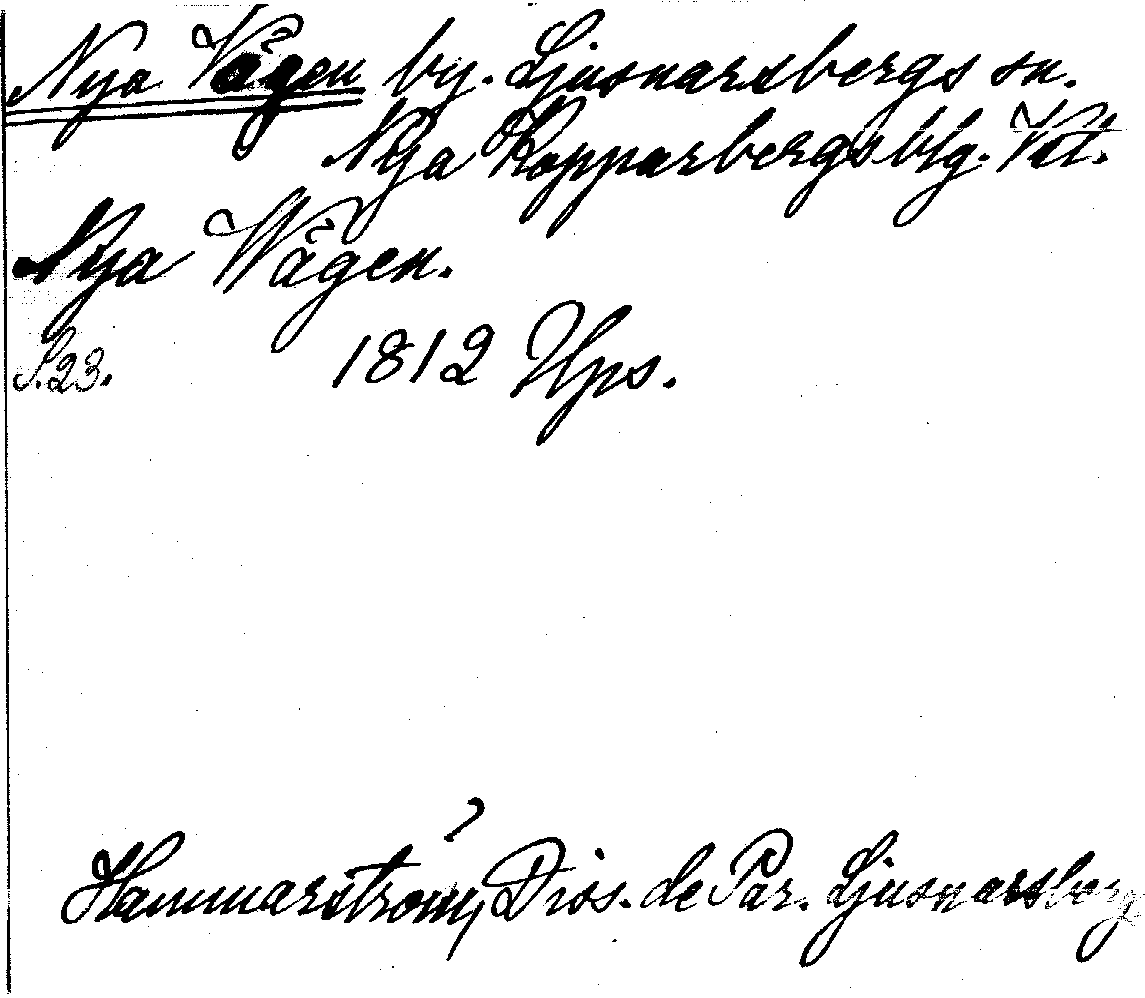 Nya Vägen by. Ljusnarsbergs sn.
Nya Kopparbergs blg. Vstl.
Nya Wägen.
S.23. 1812 Ups.
Hammarström, Diss. de Par. Ljusnarsberg